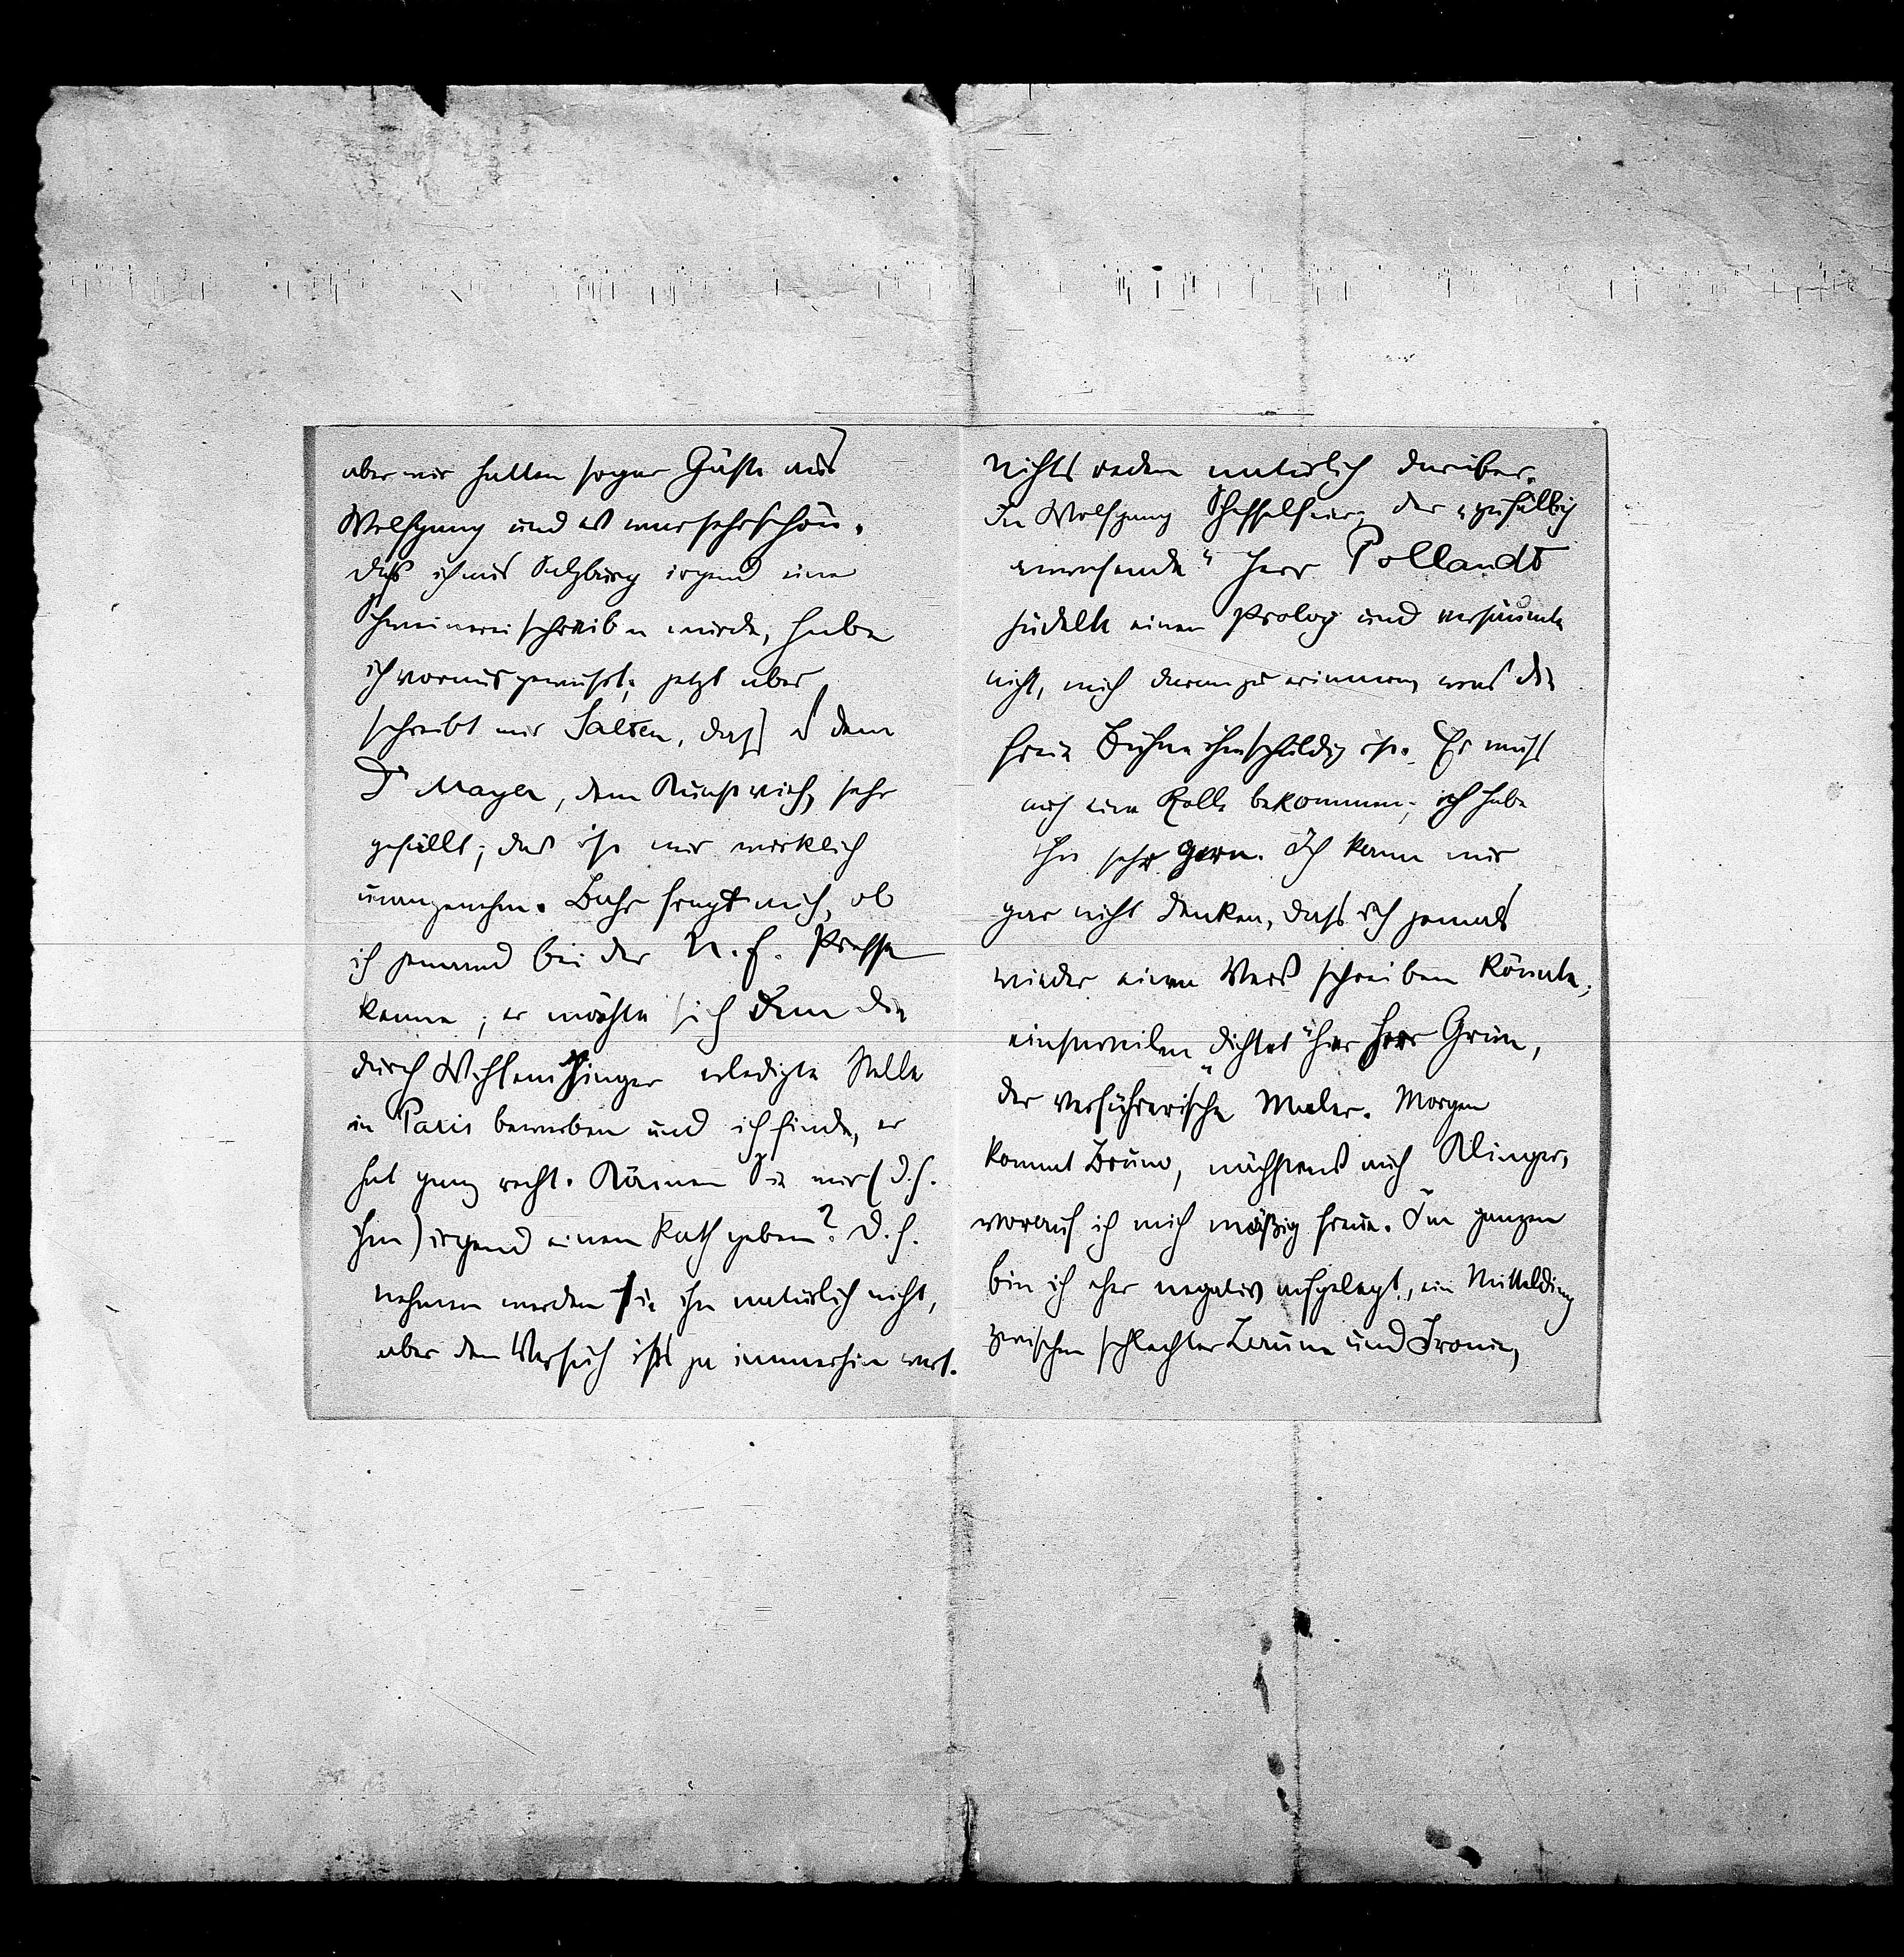 aber wir hatten sogar Gäste aus
Wolfgang und es war sehr schön.
Daß ich aus Salzburg irgend eine
Schweinerei schreiben würde, habe
ich vorausgewusst; jetzt aber
schreibt mir Salten, dass es dem
Dr Mayer, dem Kunstvieh, sehr
gefällt; das ist mir wirklich
unangenehm. Bahr fragt mich, ob
ich jemand bei der N. f. Presse
kenne; er möchte sich um die
durch Wihlem Singer erledigte Stelle
in Paris bewerben und ich finde, er
hat ganz recht. Können Sie mir (d. h.
ihm) irgend einen Rath geben? D. h.
nehmen werden sie ihn natürlich nicht,
aber den Versuch ists ja immerhin wert.
Nichts reden natürlich darüber.
In Wolfgang Scheffelfeier; der „zufällig
anwesende“ Herr Pollandt
hudelte einen Prolog und versäumte
nicht, mich daran zu erinnern was die
freie Bühne ihm schuldig ist. Er muss
noch eine Rolle bekommen; ich habe
ihn sehr gern. Ich kann mir
gar nicht denken, dass ich jemals
wieder einen Vers schreiben könnte;
einstweilen „dichtet“ hier Herr Grün,
der verführerische Maler. Morgen
kommt Bruno, nächstens auch Klinger,
worauf ich mich mäßig freue. Im ganzen
bin ich eher negativ aufgelegt, ein Mittelding
zwischen schlechter Laune und Ironie,